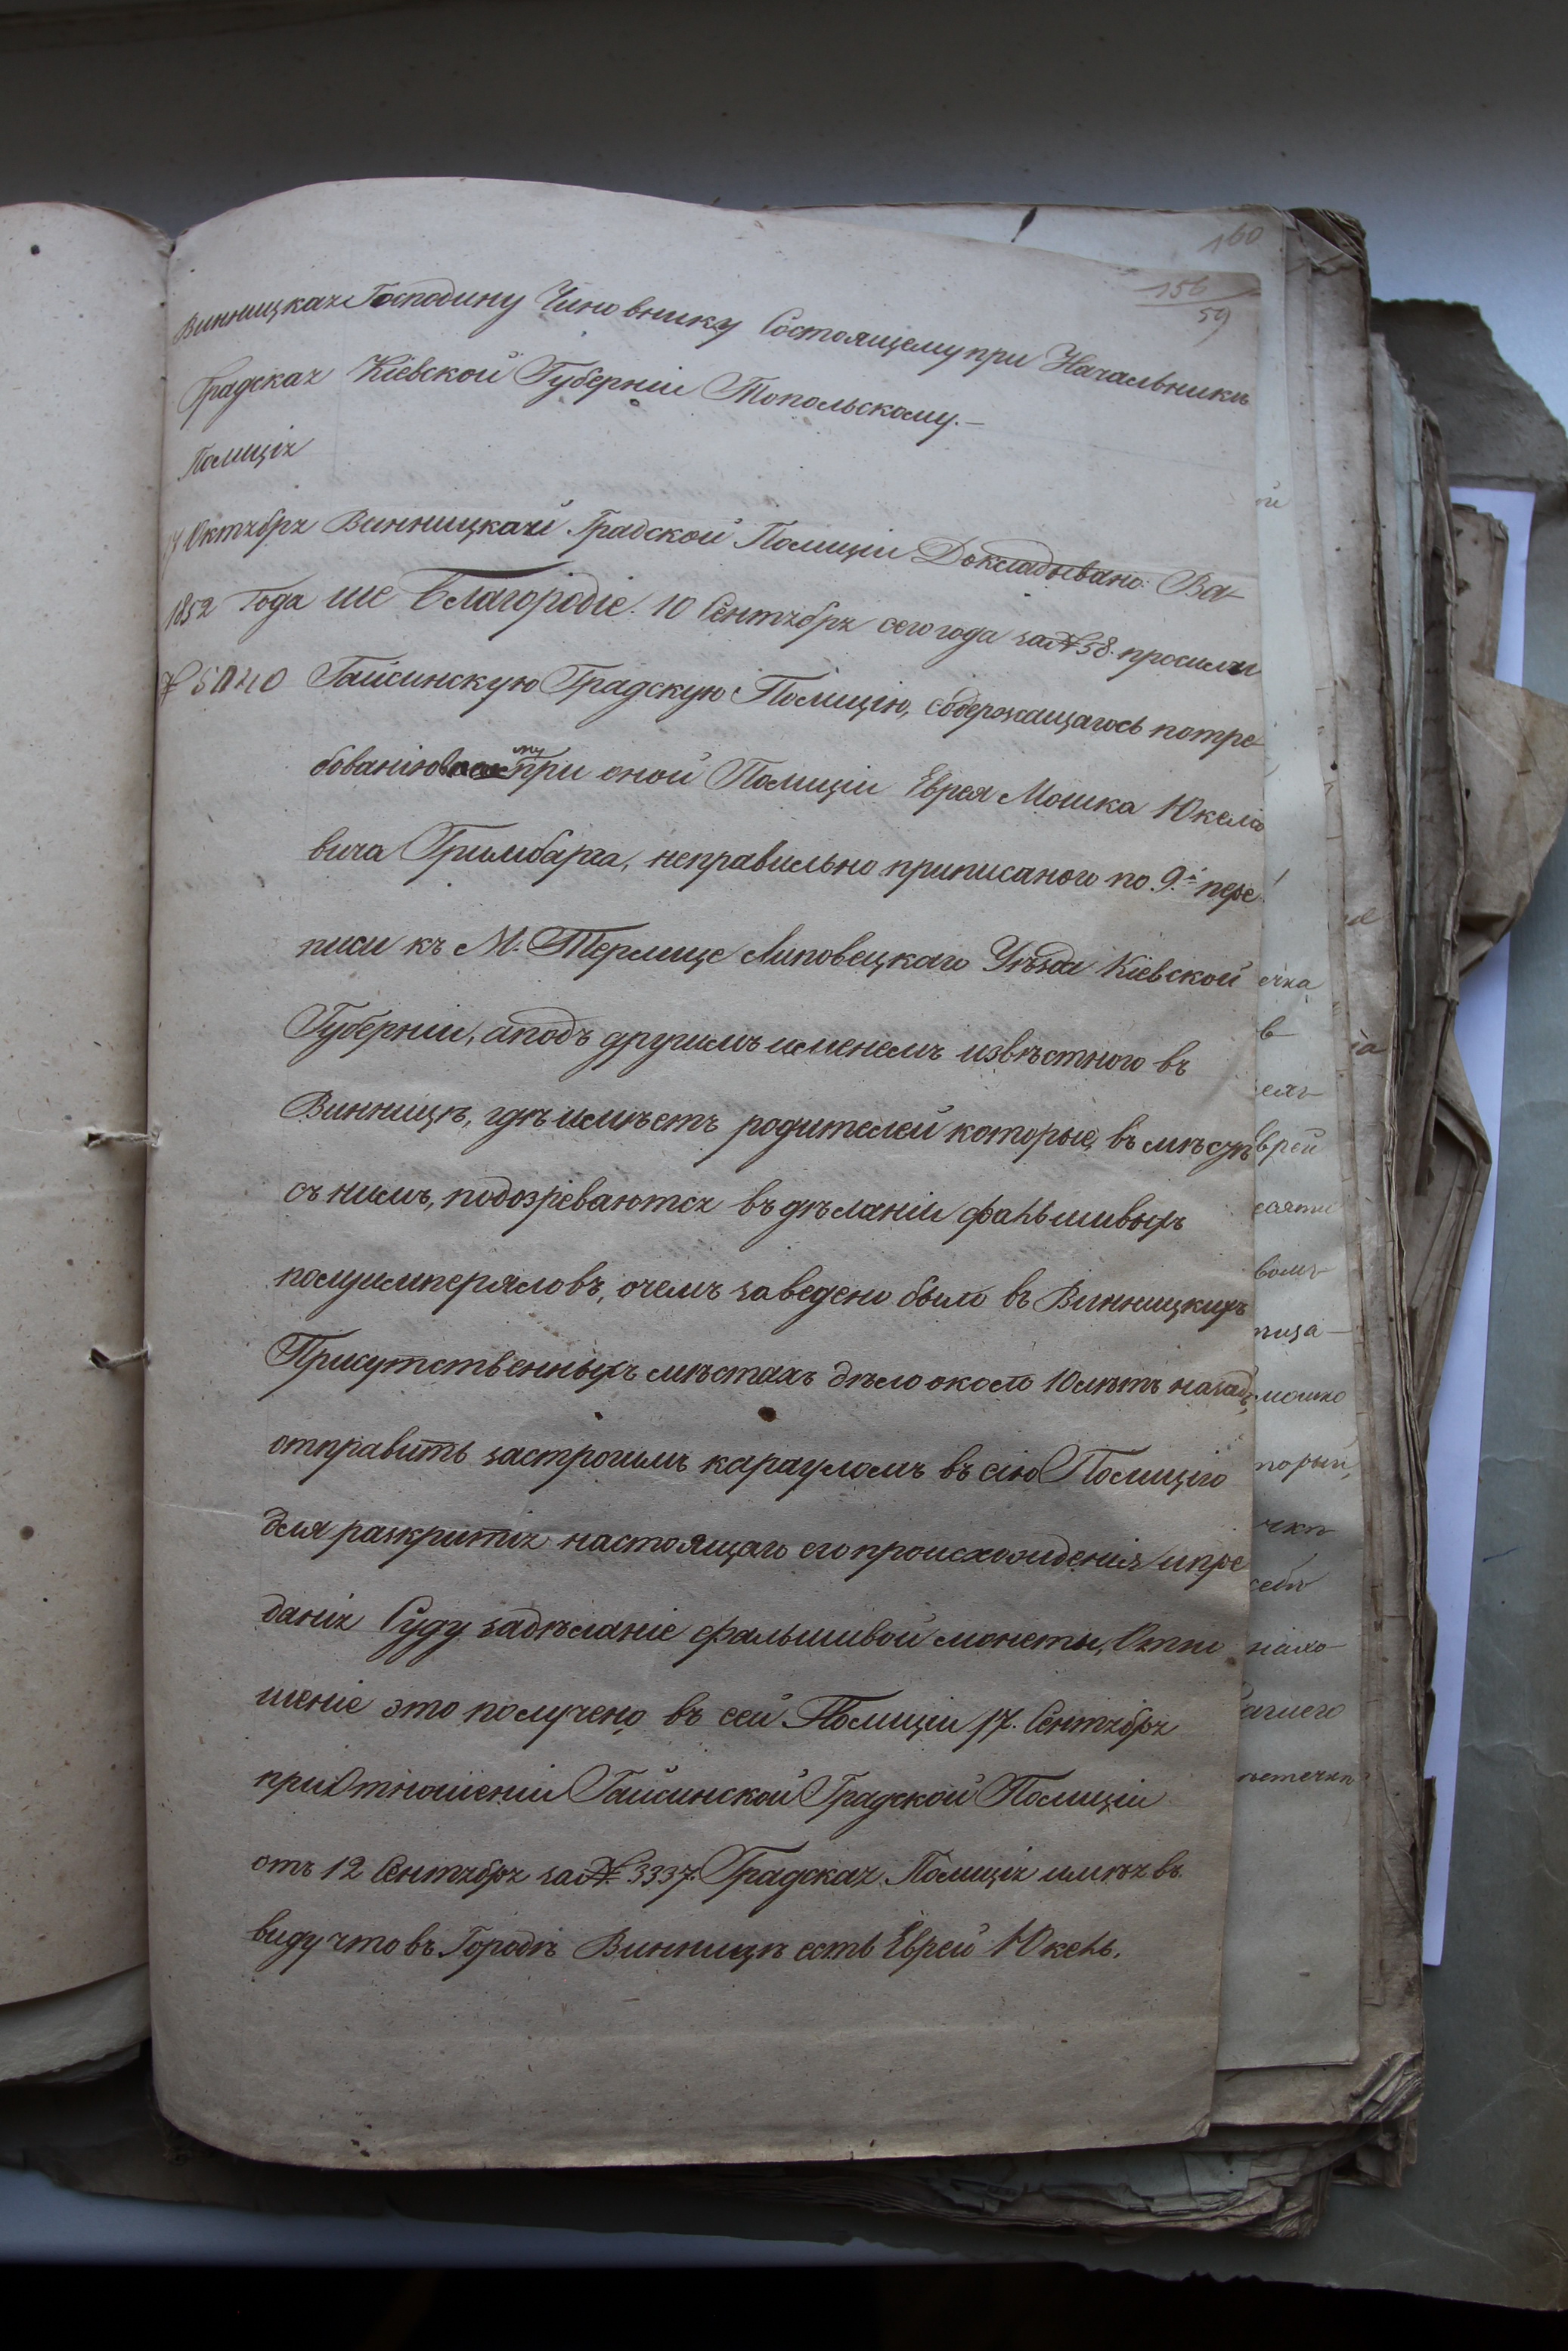 160
156
59
Винницкая Господину Чиновнику Состоящему при Начальникѣ
Градская Кіевской Губерніи Топольскому.—
Полиція
Октября Винницкаяй Градской Полиціи Докладывано: Ва-
1852 Года ше Благородіе. 10 Сентября сего года за № 58. просили
№ 5040 Гайсинскую Градскую Полицію, содержащагось потре-
бованію при оной Полиціи Еврея Мошка Юкело
вича Гримбарга, неправильно приписаного по 9.й пере
писи къ М. Терлице Липовецкаго Уѣзда Кіевской
Губерніи, аподъ другимъ именемъ извѣстного въ
Винницѣ, гдѣ имѣетъ родителей которые, въ мѣстѣ
съ нимъ, подозреваются въ дѣланіи фальшивыхъ
полуимперяловъ, очемъ заведено было въ Винницкихъ
Присутственныхъ мѣстахъ дѣло около 10 лѣтъ назадъ,
отправить застрогимъ карауломъ въ сію Полицію
для разкритія настоящаго его происхожденія и пре
данія Суду задѣланіе фальшивой монеты, Отно
шеніе это получено въ сей Полиціи 17. Сентября
при Отношеніи Гайсинской Градской Полиціи
отъ 12 Сентября за № 3337. Градская Полиція имѣя въ
виду что въ Городѣ Винницѣ есть Еврей Юкель.